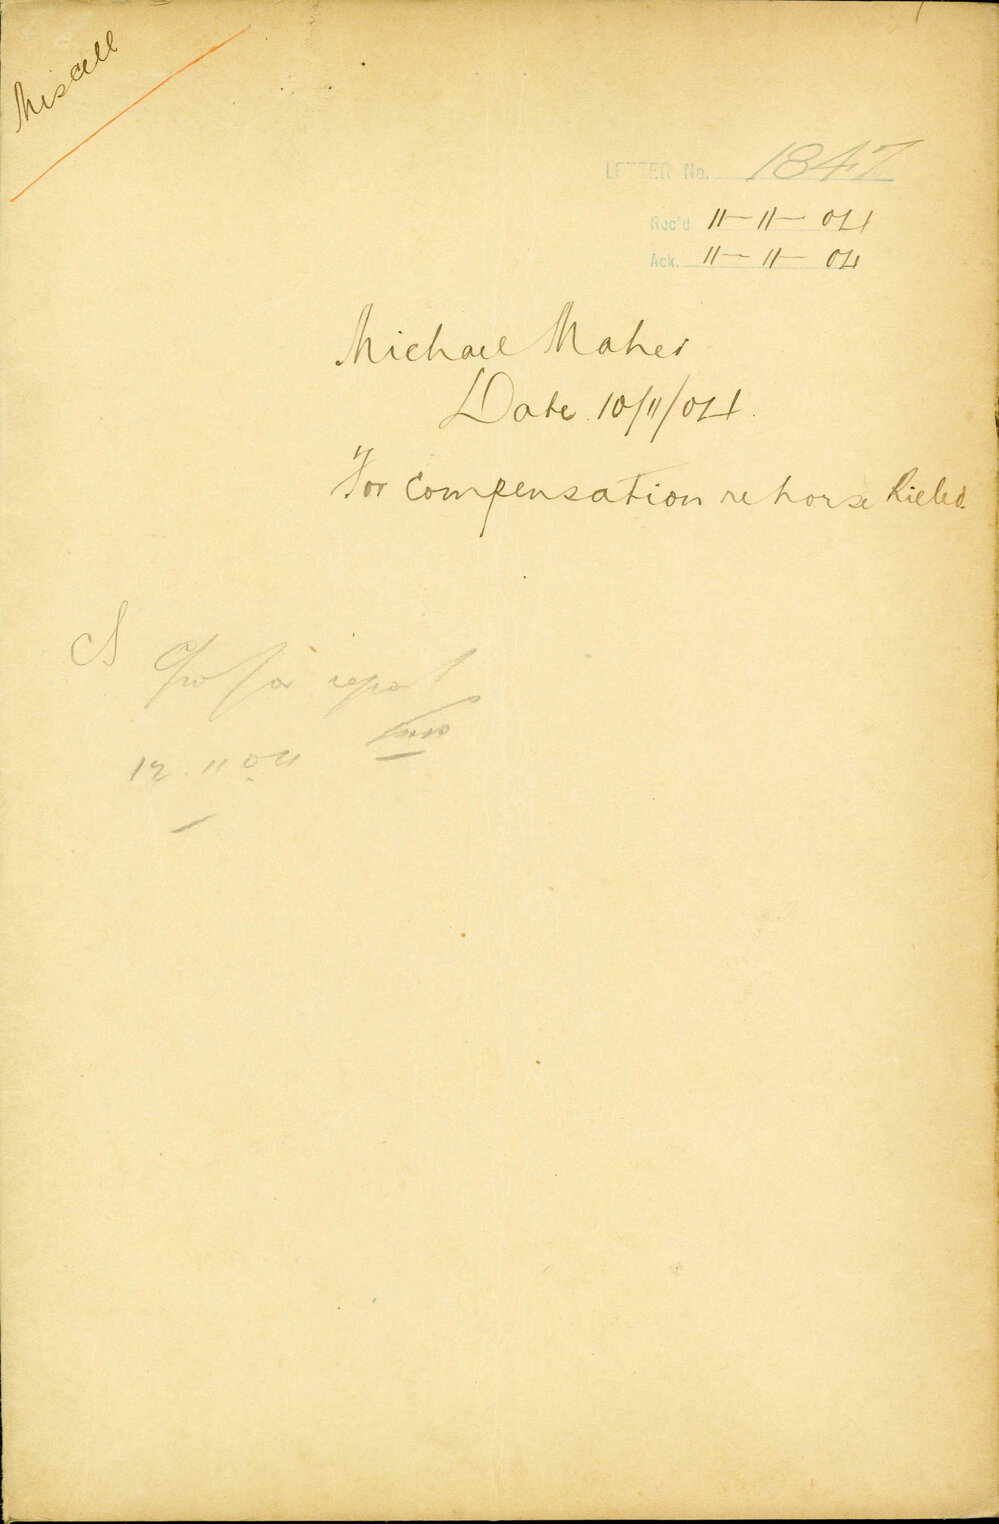 Miscell
LETTER No. 1847
Rec'd 11-11-04
Ack. 11-11-04
Michael Maher
Date 10/11/04.
For compensation re horse killed.
for report
12.11.04